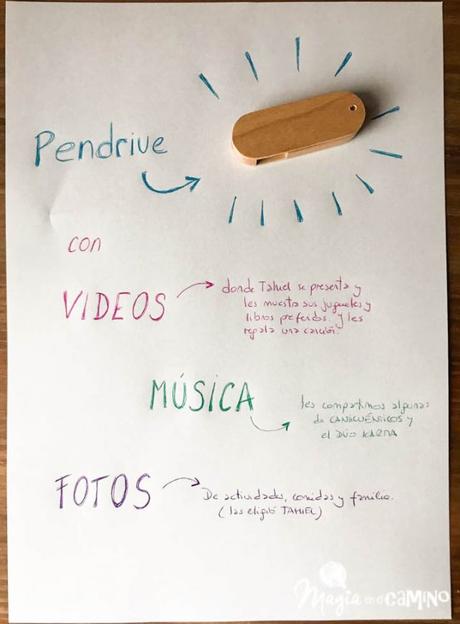 Pendrive
con
VIDEOS
donde Tahiel se presenta y
les muestra sus juguetes y
libros preferidos. y les
regala una canción.
MÚSICA
les compartimos algunas
de CANTICUÉNTICOS y
el DÚO KARMA
FOTOS
De actividades, comidas y familia.
(las eligió TAHIEL)
Magia en el CAMINO